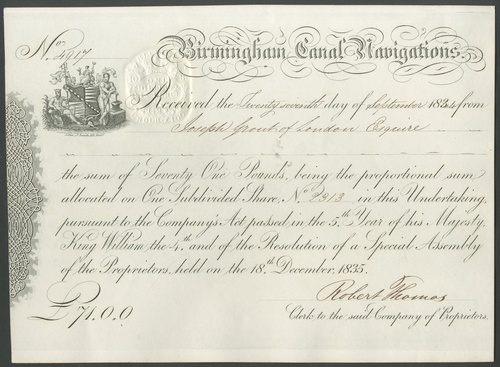 No. 2917
Birmingham Canal Navigations.
Received the Twenty seventh day of September 1844 from
Joseph Grout of London Esquire
the sum of Seventy One Pounds, being the proportional sum
allocated on One Subdivided Share, No. 2813 in this Undertaking,
pursuant to the Company's Act passed in the 5th Year of his Majesty,
King William the 4th and of the Resolution of a Special Assembly
of the Proprietors, held on the 18th December, 1835.
£71.0.0
Robert Thomas
Clerk to the said Company of Proprietors.